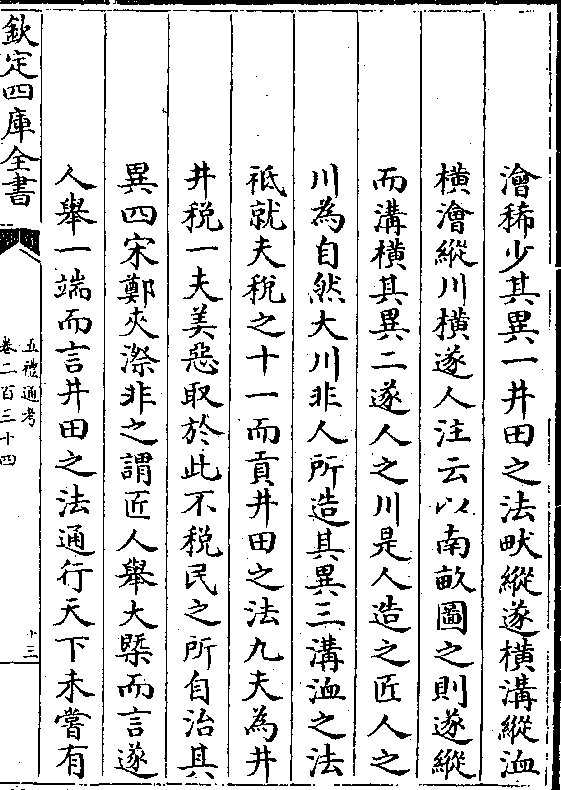 澮稀少其異一井田之法畎縱遂橫溝縱洫
橫澮縱川橫遂人注云以南畝圖之則遂縱
而溝橫其異二遂人之川是人造之匠人之
川為自然大川非人所造其異三溝洫之法
祗就夫稅之十一而貢井田之法九夫為井
井稅一夫美惡取於此不稅民之所自治其
異四宋鄭夾漈非之謂匠人舉大槩而言遂
人舉一端而言井田之法通行天下未嘗有
欽定四庫全書
五禮通考
卷二百三十四
十三